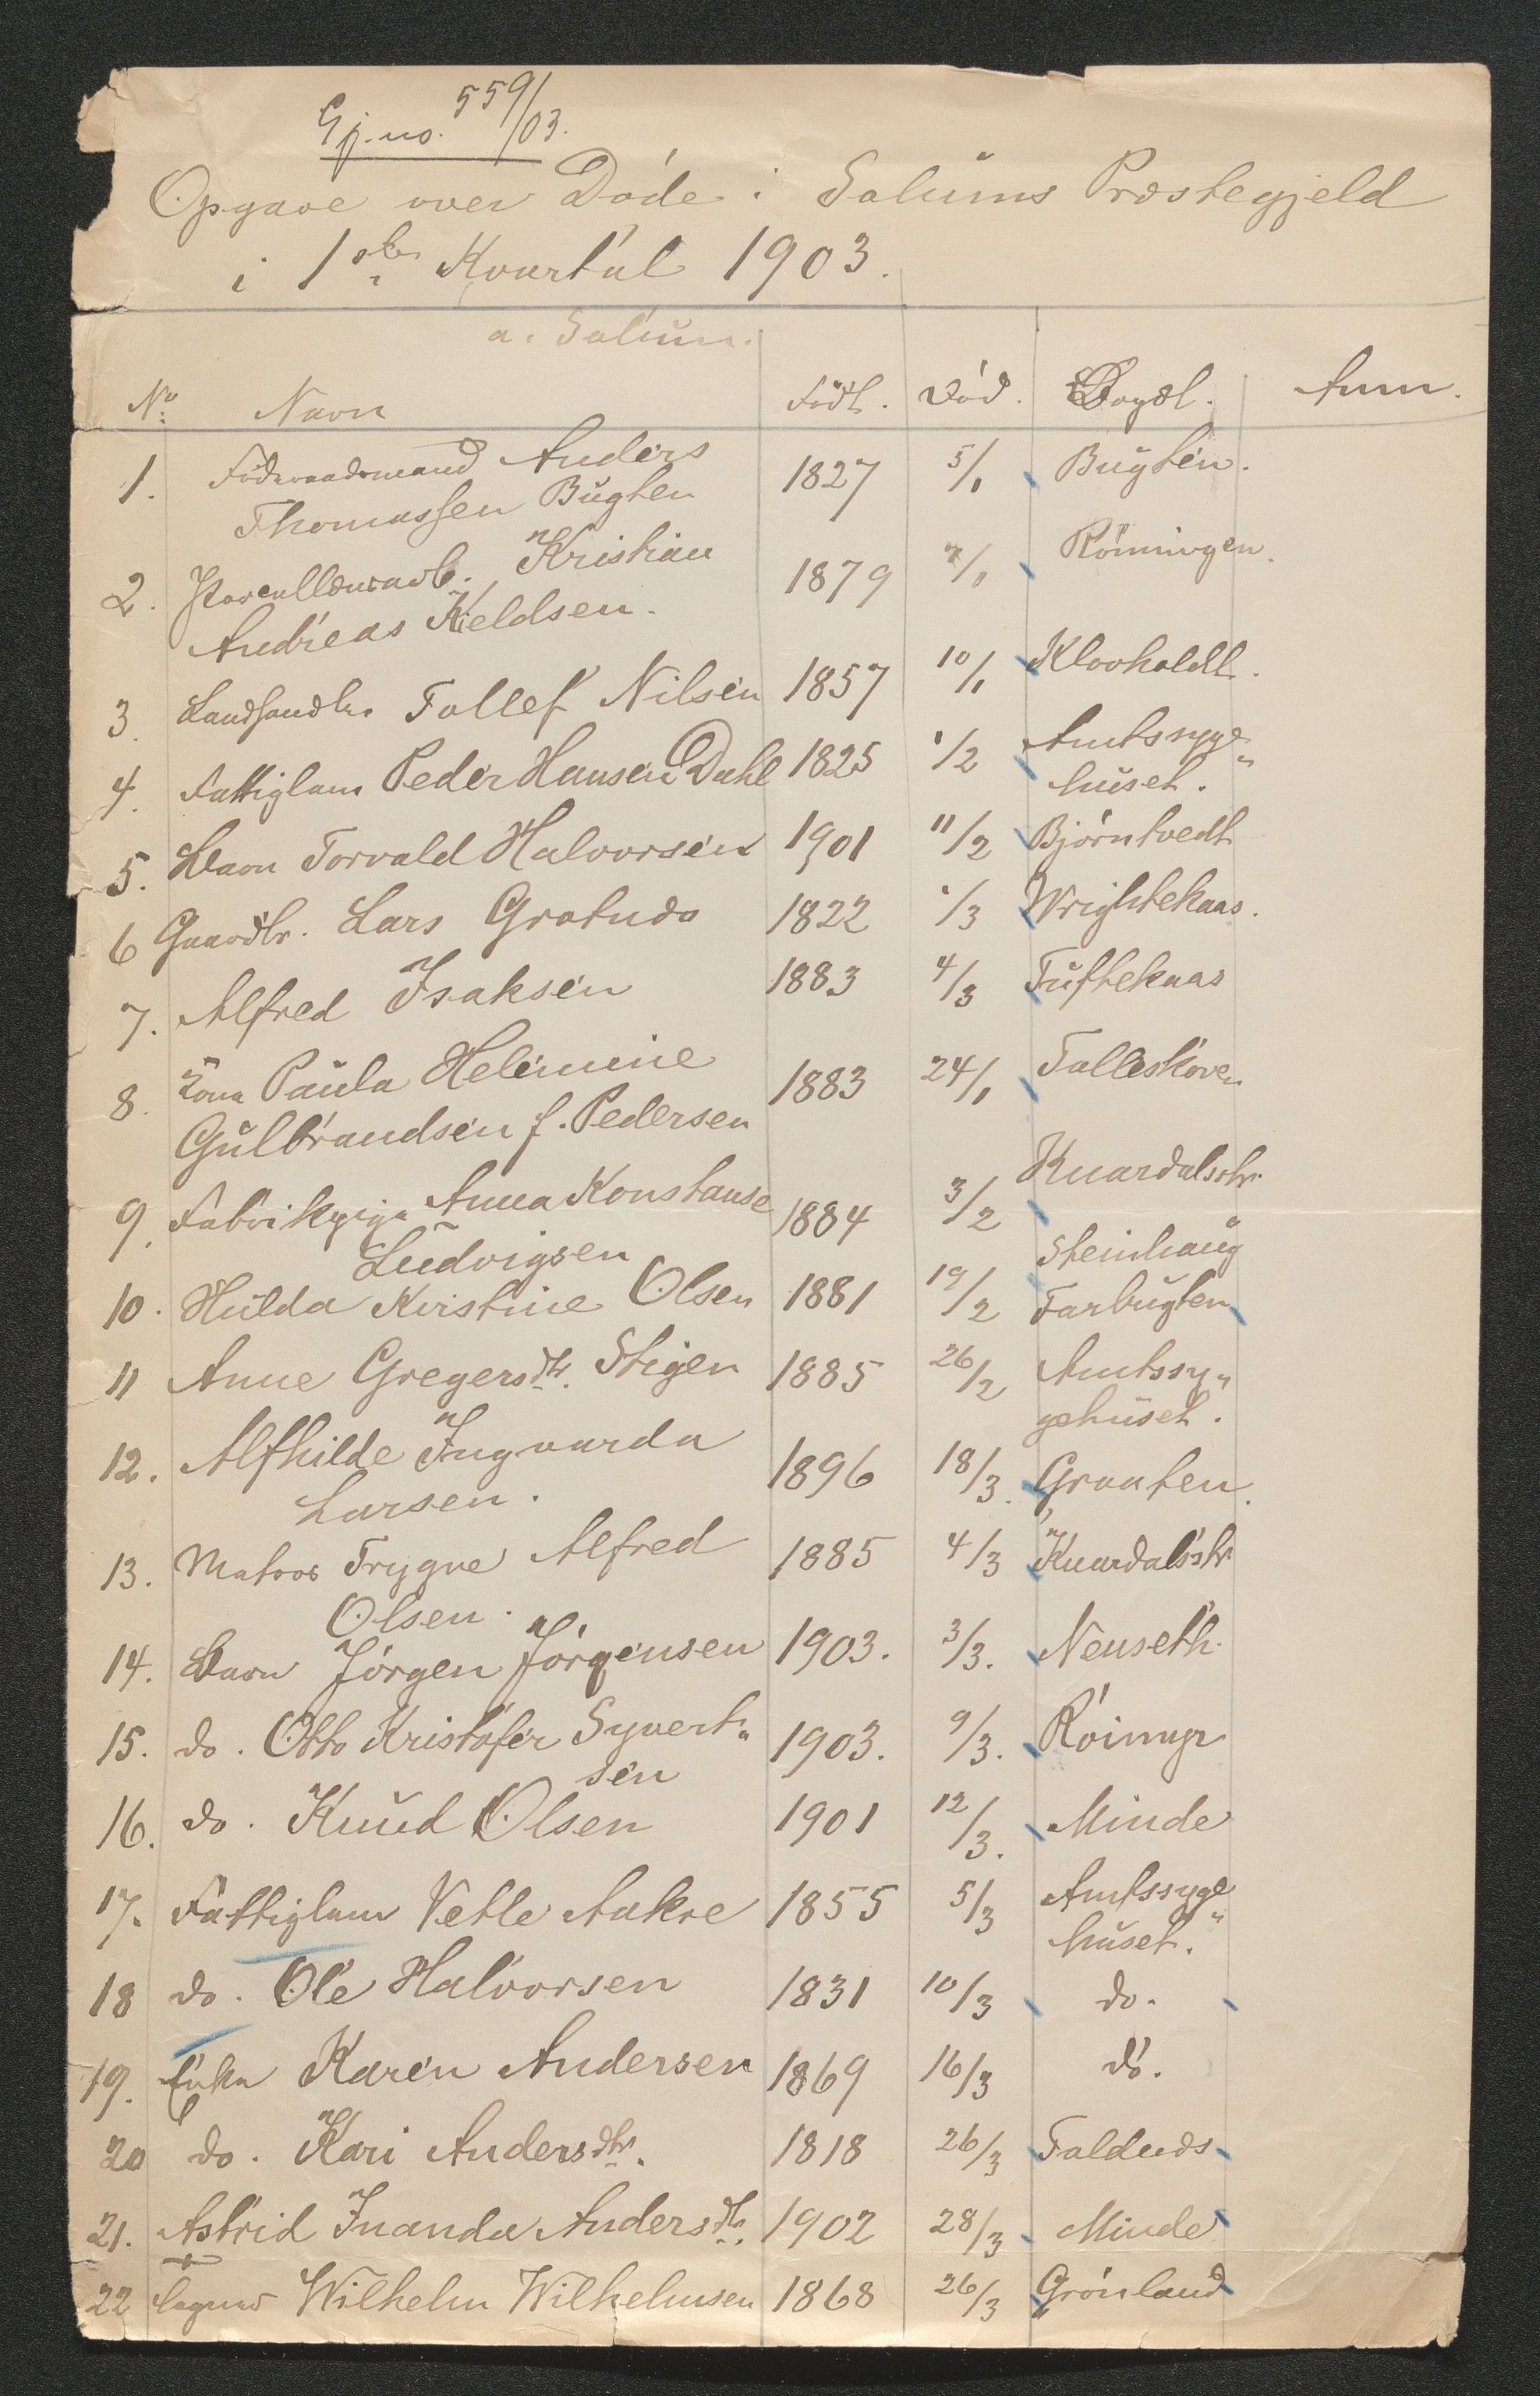 Gj. no. 559/03.
Opgave over Døde i Solums Præstegjeld
i 1ste Kvartal 1903.
a. Solum.
No Navn Født. Død. Bopæl. Anm.
1. Føderaadsmand Anders 1827 5/1 Bugten.
Thomassen Bugten
2. Porcellænsarb. Kristian 1879 7/1 Rönningen.
Andreas Kieldsen.
3. Landhandler Tollef Nilsen 1857 10/1 Klovholdt.
4. Fattiglem Peder Hansen Dahl 1825 1/2 Amtssyge-
huset.
5. Barn Torvald Halvorsen 1901 11/2 Bjørntvedt
6 Gaardbr. Lars Gratnds 1822 1/3 Wrightekaas.
7. Alfred Isaksen 1883 4/3 Tuftekaas
8. Kona Paula Helemine 1883 24/1 Folleskoven
Gulbrandsen f. Pedersen
9. Fabrikpige Anna Konstanse 1884 3/2 Knardalsstr.
Ludvigsen Steinhaug
10. Hulda Kristine Olsen 1881 19/2 Farbugten
11 Anne Gregersdtr. Stigen 1885 26/2 Amtssy-
gehuset.
12. Alfhilde Ingvarda 1896 18/3. Graaten.
Larsen.
13. Matros Trygve Alfred 1885 4/3 Knardalsstr.
Olsen.
14. Barn Jørgen Jørgensen 1903. 3/3. Nenseth.
15. do. Otto Kristofer Syvert- 1903. 9/3. Röimyr
sen
16. do. Knud Olsen 1901 12/3. Minde
17. Fattiglem Vetle Aakre 1855 5/3 Amtssyge-
huset.
18 do. Ole Halvorsen 1831 10/3 do.
19. Enke Karen Andersen 1869 16/3 do.
20 do. Kari Andersdtr. 1818 26/3 Foldnds
21. Astrid Inanda Andersdtr. 1902 28/3 Minde
22 Wilhelm Wilhelmsen 1868 26/3 Grönland